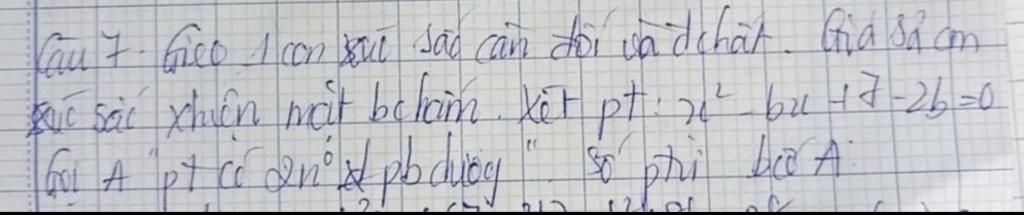 Câu 7. Gieo 1 con xúc sắc cân đối và đchất. Giả sử con
xúc sắc xhiện mặt b chấm. Xét pt: x² - bx + 7 - 2b = 0
Gọi A "pt có 2n⁰ pb dương" Số ptử bcố A: